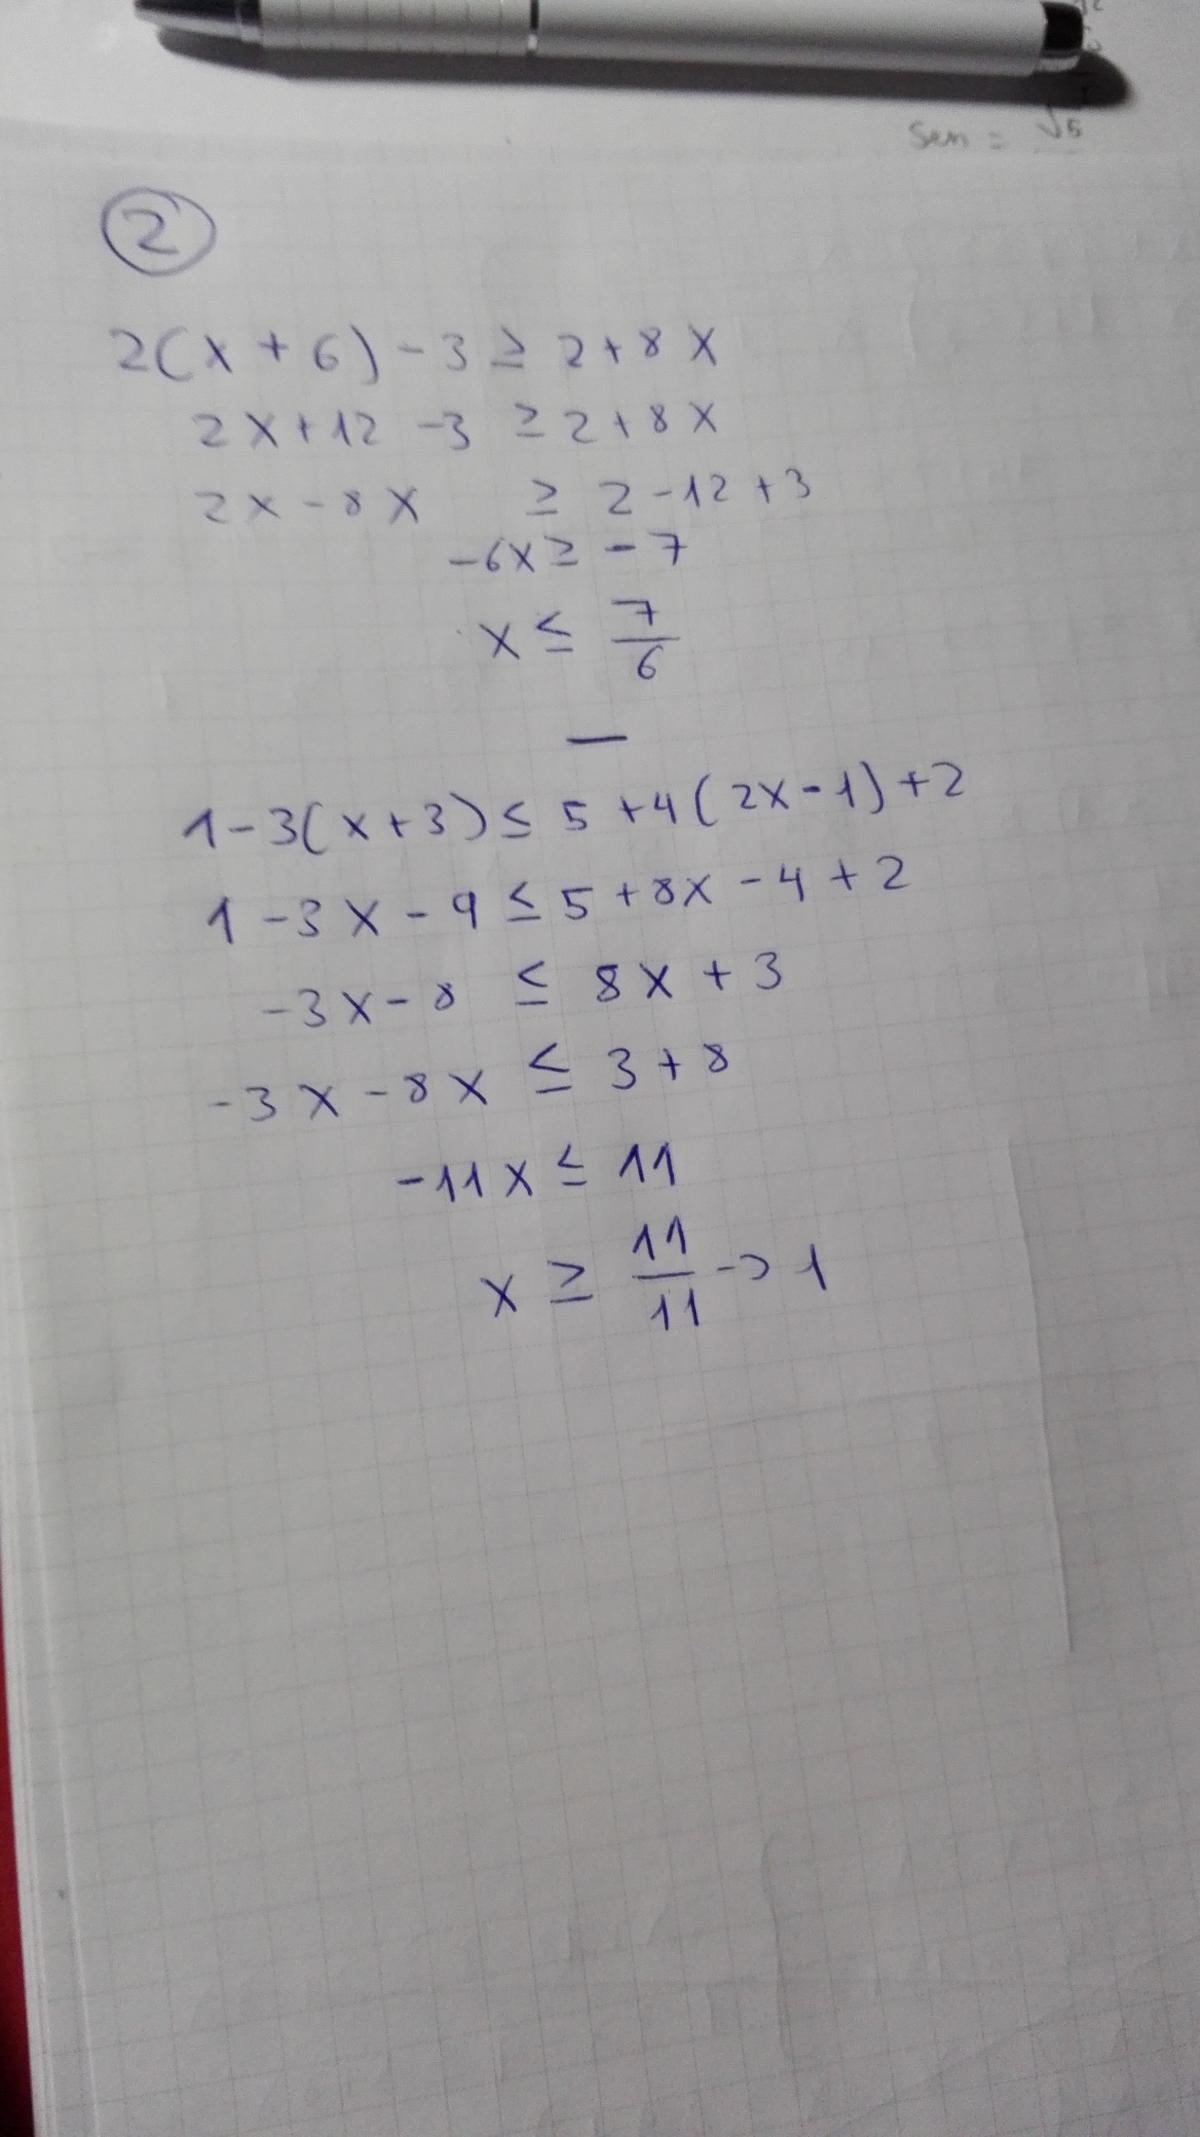 sen = √5
2
2(x + 6) - 3 ≥ 2 + 8x
2x + 12 - 3 ≥ 2 + 8x
2x - 8x ≥ 2 - 12 + 3
-6x ≥ -7
x ≤ 7/6
—
1 - 3(x + 3) ≤ 5 + 4(2x - 1) + 2
1 - 3x - 9 ≤ 5 + 8x - 4 + 2
-3x - 8 ≤ 8x + 3
-3x - 8x ≤ 3 + 8
-11x ≤ 11
x ≥ 11/11 -> 1